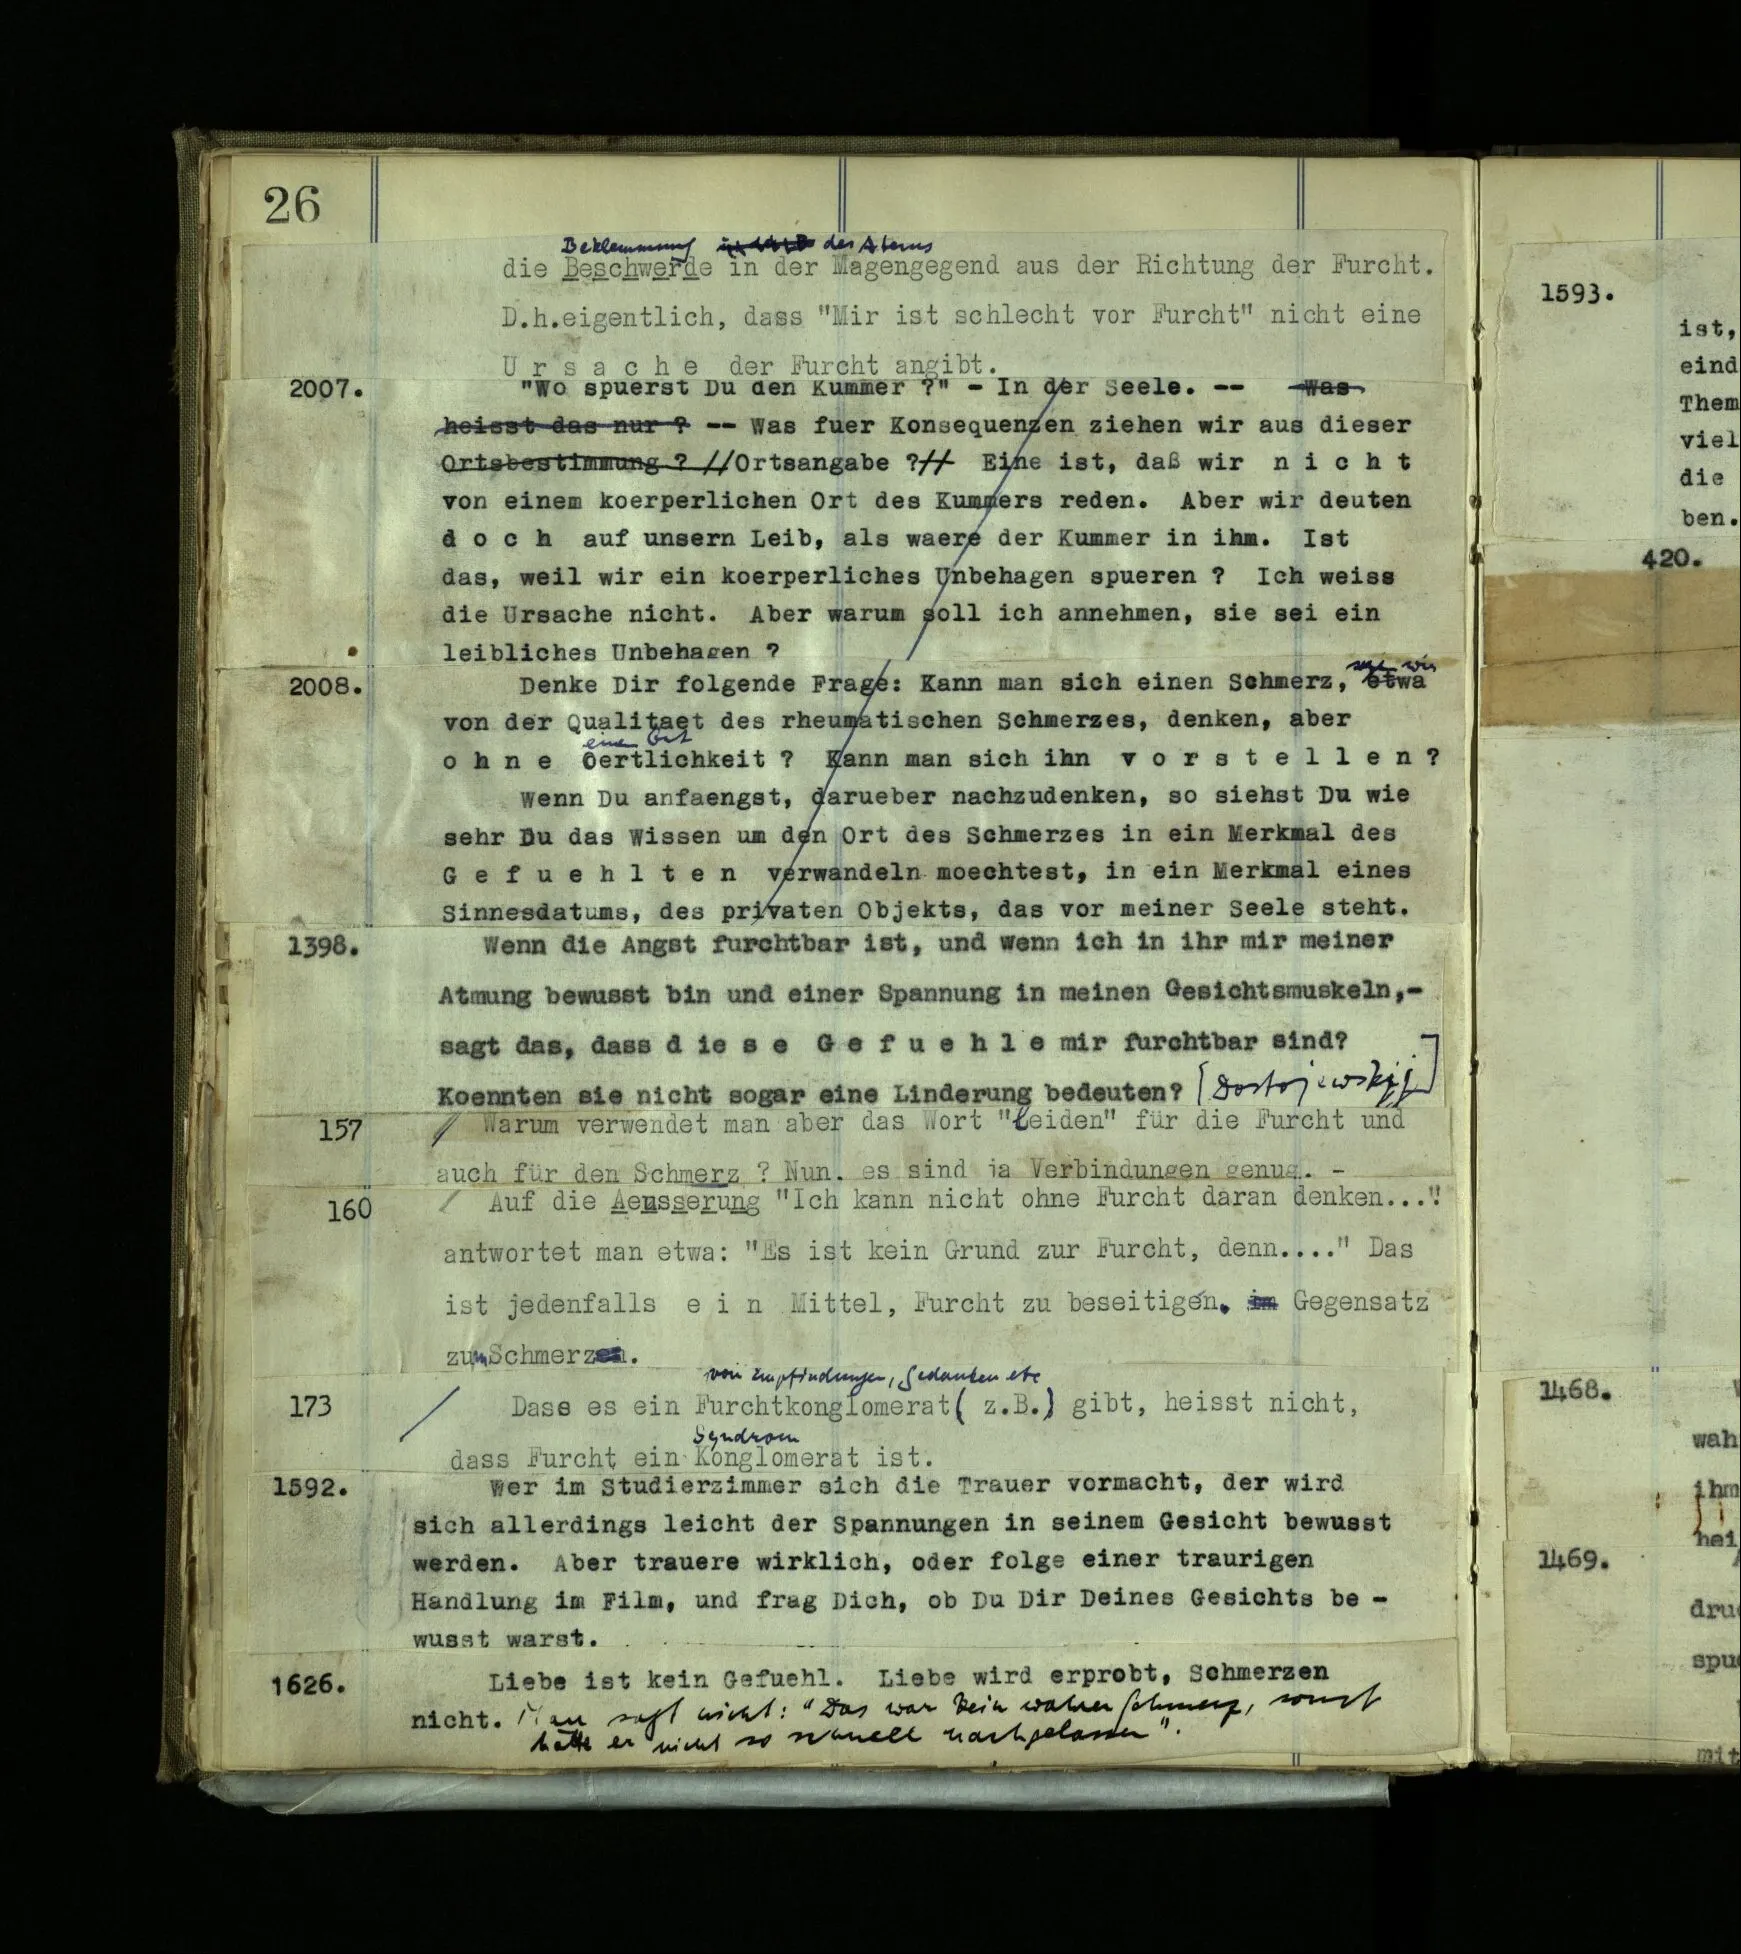 26
Beklemmung des Atems
die Beschwerde in der Magengegend aus der Richtung der Furcht.
D.h.eigentlich, dass "Mir ist schlecht vor Furcht" nicht eine
U r s a c h e der Furcht angibt.
2007. "Wo spuerst Du den Kummer ?" - In der Seele. -- Was
heisst das nur ? -- Was fuer Konsequenzen ziehen wir aus dieser
Ortsbestimmung ? //Ortsangabe ?// Eine ist, daß wir n i c h t
von einem koerperlichen Ort des Kummers reden. Aber wir deuten
d o c h auf unsern Leib, als waere der Kummer in ihm. Ist
das, weil wir ein koerperliches Unbehagen spueren ? Ich weiss
die Ursache nicht. Aber warum soll ich annehmen, sie sei ein
leibliches Unbehagen ?
wir
2008. Denke Dir folgende Frage: Kann man sich einen Schmerz, etwa
von der Qualitaet des rheumatischen Schmerzes, denken, aber
einen Ort
o h n e Oertlichkeit ? Kann man sich ihn v o r s t e l l e n ?
Wenn Du anfaengst, darueber nachzudenken, so siehst Du wie
sehr Du das Wissen um den Ort des Schmerzes in ein Merkmal des
G e f u e h l t e n verwandeln moechtest, in ein Merkmal eines
Sinnesdatums, des privaten Objekts, das vor meiner Seele steht.
1398. Wenn die Angst furchtbar ist, und wenn ich in ihr mir meiner
Atmung bewusst bin und einer Spannung in meinen Gesichtsmuskeln,-
sagt das, dass d ie s e G e f u e h l e mir furchtbar sind?
Koennten sie nicht sogar eine Linderung bedeuten? [Dostojewskij]
157 / Warum verwendet man aber das Wort "Leiden" für die Furcht und
auch für den Schmerz ? Nun. es sind ja Verbindungen genug. -
160 / Auf die Aeusserung "Ich kann nicht ohne Furcht daran denken..."!
antwortet man etwa: "Es ist kein Grund zur Furcht, denn...." Das
ist jedenfalls e i n Mittel, Furcht zu beseitigen. im Gegensatz
zum Schmerzen.
von Empfindungen, Gedanken etc
173 / Dass es ein Furchtkonglomerat( z.B.) gibt, heisst nicht,
Syndrom
dass Furcht ein Konglomerat ist.
1592. Wer im Studierzimmer sich die Trauer vormacht, der wird
sich allerdings leicht der Spannungen in seinem Gesicht bewusst
werden. Aber trauere wirklich, oder folge einer traurigen
Handlung im Film, und frag Dich, ob Du Dir Deines Gesichts be -
wusst warst.
1626. Liebe ist kein Gefuehl. Liebe wird erprobt, Schmerzen
nicht. Man sagt nicht: "Das war kein wahrer Schmerz, sonst
hätte er nicht so schnell nachgelassen".
1593.
ist,
eind
Them
viel
die
ben.
420.
1468. W
wah
ihm
hei
1469.
dru
spu
mit